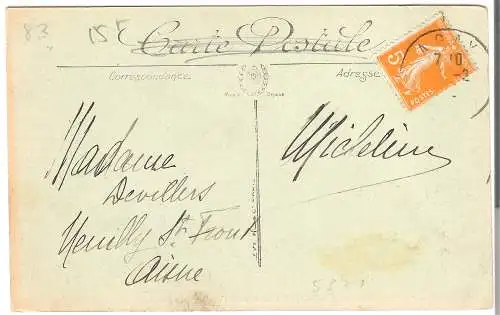 83
15F
Carte Postale
Correspondance
Adresse
5
POSTES
7 10
Madame
Devillers
Neuilly St Front
Aisne
Micheline